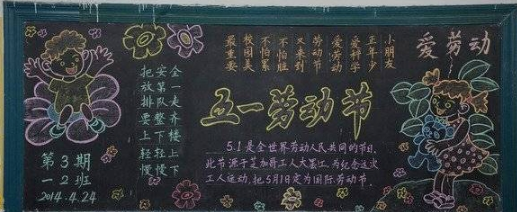 爱劳动
小朋友
正年少
爱科学
爱劳动
劳动节
又来到
不怕脏
不怕累
校园美
最重要
把安全
放第一
排队走
要整齐
上下楼
轻轻上
慢慢下
五一劳动节
5.1是全世界劳动人民共同的节日,
此节源于芝加哥工人大罢工,为纪念这次
工人运动,把5月1日定为国际劳动节.
第3期
一2班
2014.4.24